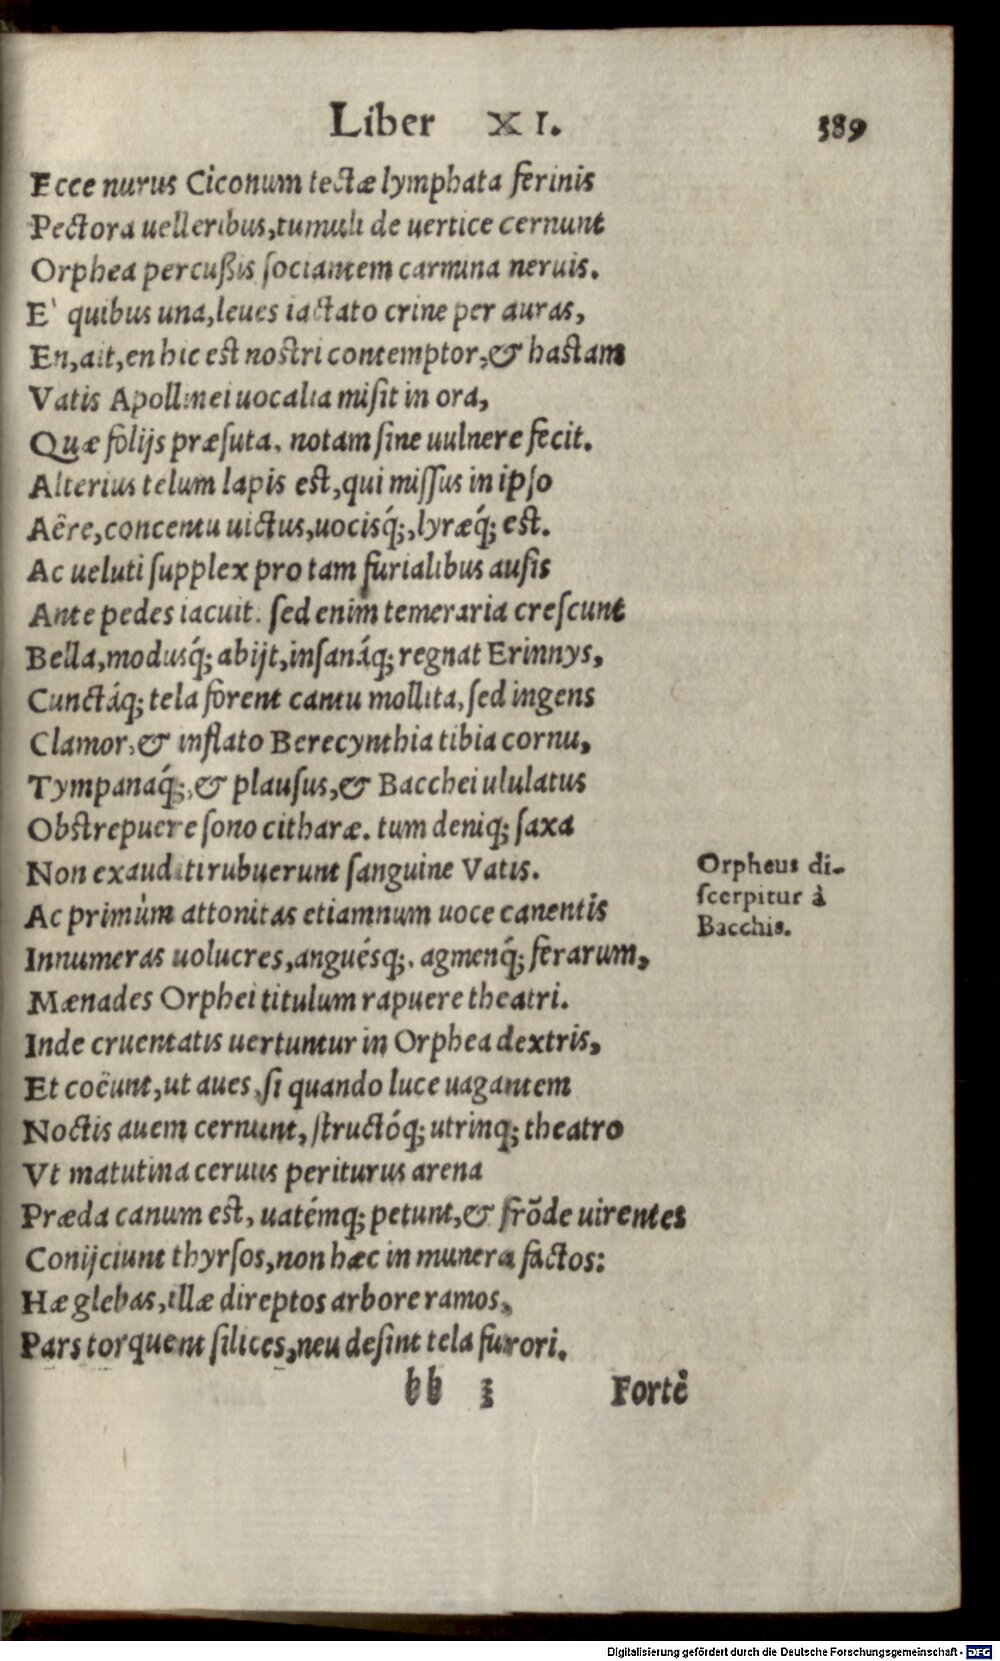 Liber XI. 389
Ecce nurus Ciconum tectæ lymphata ferinis
Pectora uelleribus, tumuli de uertice cernunt
Orphea percußis ſociantem carmina neruis.
E` quibus una, leues iactato crine per auras,
En, ait, en hic eſt noſtri contemptor, & haſtam
Vatis Apollinei uocalia miſit in ora,
Quæ folijs præſuta, notam ſine uulnere fecit.
Alterius telum lapis eſt, qui miſſus in ipſo
Aëre, concentu uictus, uocisq́;, lyræq́; eſt.
Ac ueluti ſupplex pro tam furialibus auſis
Ante pedes iacuit. ſed enim temeraria creſcunt
Bella, modusq́; abijt, inſanáq; regnat Erinnys,
Cunctáq; tela forent cantu mollita, ſed ingens
Clamor, & inflato Berecynthia tibia cornu,
Tympanaq́;, & plauſus, & Bacchei ululatus
Obſtrepuere ſono citharæ. tum deniq; ſaxa
Non exauditi rubuerunt ſanguine Vatis.
Ac primùm attonitas etiamnum uoce canentis
Innumeras uolucres, anguésq;, agmenq́; ferarum,
Mænades Orphei titulum rapuere theatri.
Inde cruentatis uertuntur in Orphea dextris,
Et coëunt, ut aues, ſi quando luce uagantem
Noctis auem cernunt, ſtructóq; utrinq; theatro
Vt matutina ceruus periturus arena
Præda canum eſt, uatémq; petunt, & frõde uirentes
Conijciunt thyrſos, non hæc in munera factos:
Hæ glebas, illæ direptos arbore ramos,
Pars torquent ſilices, neu deſint tela furori.
bb 3 Fortè
Orpheus di-
ſcerpitur à
Bacchis.
Digitalisierung gefördert durch die Deutsche Forschungsgemeinschaft - DFG